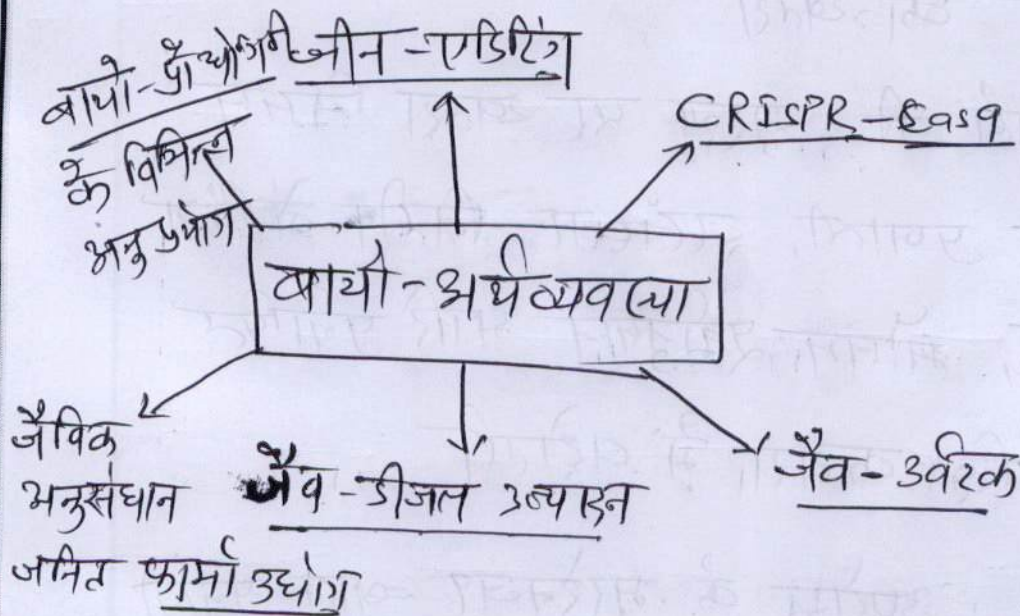 बायो-प्रौद्योगिकी
के विभिन्न
अनुप्रयोग
जीन-एडिटिंग
CRISPR-Cas9
बायो-अर्थव्यवस्था
जैविक
अनुसंधान
जनित फार्मा उद्योग
जैव-डीजल उत्पादन
जैव-उर्वरक